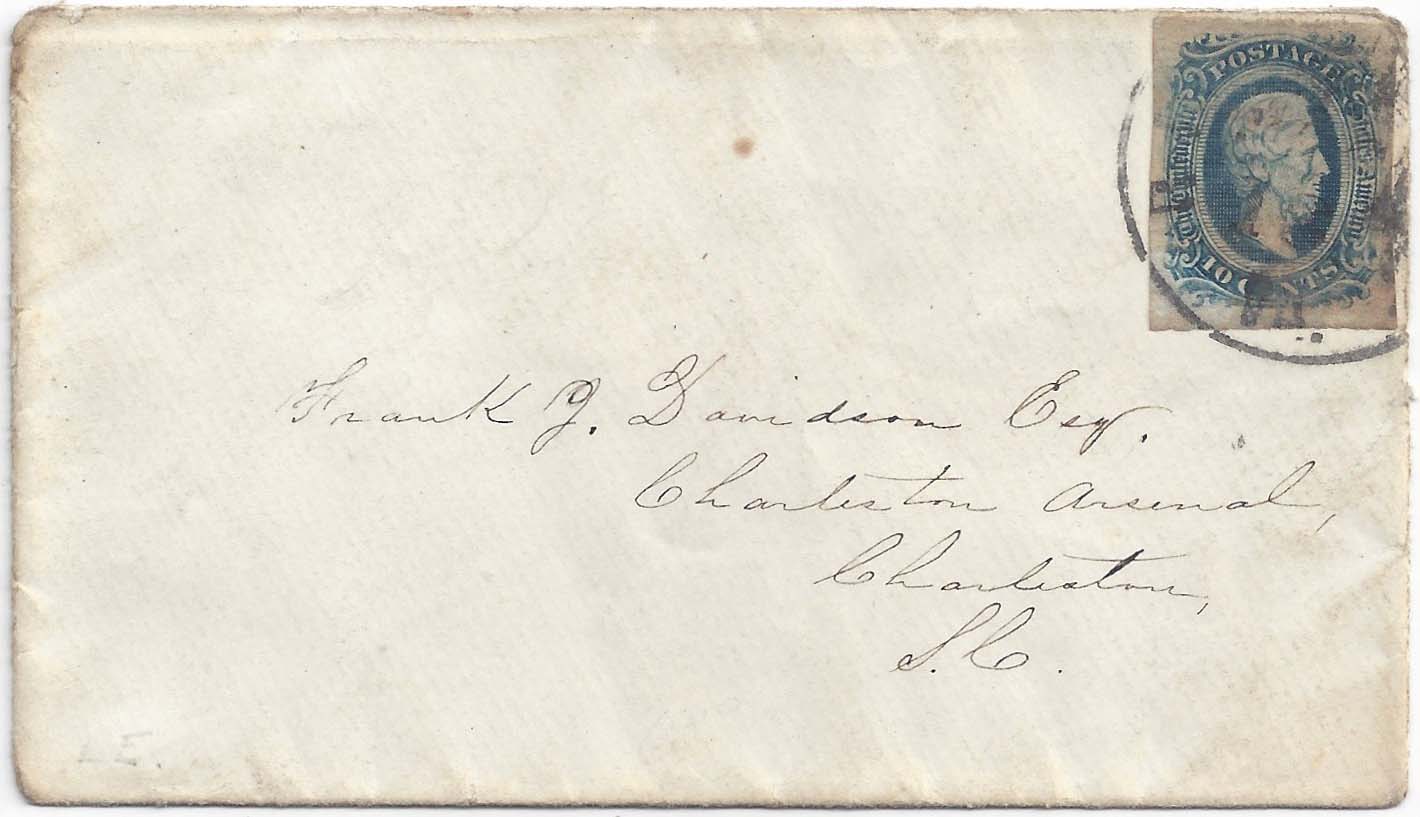 POSTAGE
The Confederate States of America
10 CENTS
VA.
Frank G. Davidson Esq.
Charleston Arsenal,
Charleston,
S.C.